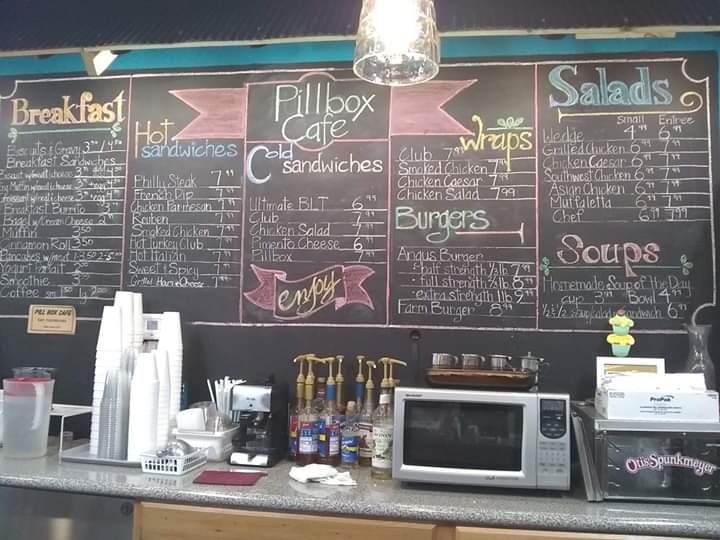 Breakfast
Biscuits & Gravy 3.⁹⁹/4.⁹⁹
Breakfast Sandwiches
Breakfast Burrito
Bagel w/Cream Cheese 2
Muffin 3.⁵⁰
Cinnamon Roll 3.⁵⁰
Pancakes w/meat
Yogurt Parfait
Smoothie 3.⁵⁰
Coffee sm 1.⁵⁰ lg 2.⁰⁰
Hot
sandwiches
Philly Steak 7.⁹⁹
French Dip 7.⁹⁹
Chicken Parmesan 7.⁹⁹
Reuben 7.⁹⁹
Smoked Chicken 7.⁹⁹
Hot Turkey Club 7.⁹⁹
Hot Italian 7.⁹⁹
Sweet & Spicy 7.⁹⁹
Grilled Ham & Cheese 7.⁹⁹
Pillbox
Cafe
Cold
sandwiches
Ultimate BLT 6.⁹⁹
Club 7.⁹⁹
Chicken Salad 7.⁹⁹
Pimento Cheese 6.⁹⁹
Pillbox 7.⁹⁹
enjoy
Wraps
Club 7.⁹⁹
Smoked Chicken 7.⁹⁹
Chicken Caesar 7.⁹⁹
Chicken Salad 7.99
Burgers
Angus Burger
• half strength 1/3 lb 7.⁹⁹
• full strength 8.⁹⁹
• extra strength 1 lb 9.⁹⁹
Farm Burger 8.⁹⁹
Salads
Small Entree
Wedge 4.⁹⁹ 6.⁹⁹
Grilled Chicken 6.⁹⁹ 7.⁹⁹
Chicken Caesar 6.⁹⁹ 7.⁹⁹
Southwest Chicken 6.⁹⁹ 7.⁹⁹
Asian Chicken 6.⁹⁹ 7.⁹⁹
Muffaletta 6.⁹⁹ 7.⁹⁹
Chef 6.⁹⁹ 7.⁹⁹
Soups
Homemade Soup of the Day
cup 3.⁹⁹ Bowl 4.⁹⁹
½ & ½ soup/salad or sandwich 6.⁹⁹
PILL BOX CAFE
SHARP
ProPak
Otis Spunkmeyer